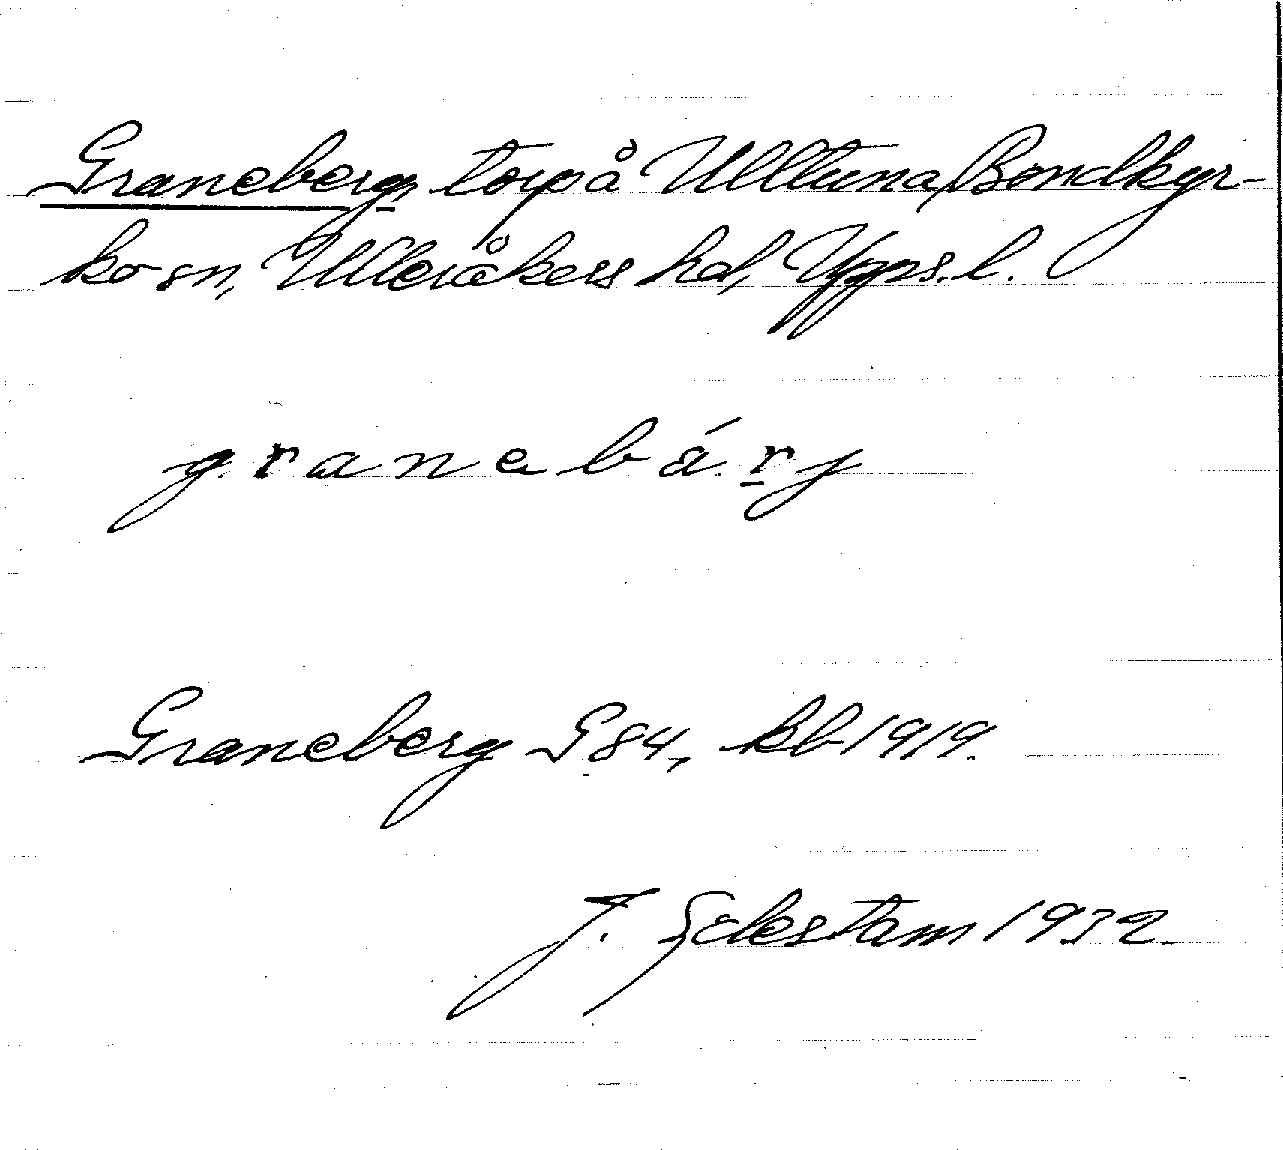 Graneberg, torp å Ulltuna, Bondkyr-
ko sn, Ulleråkers hd, Upps. l.
granebárj
Graneberg G 84, kb 1919.
J. Sahlestam 1932